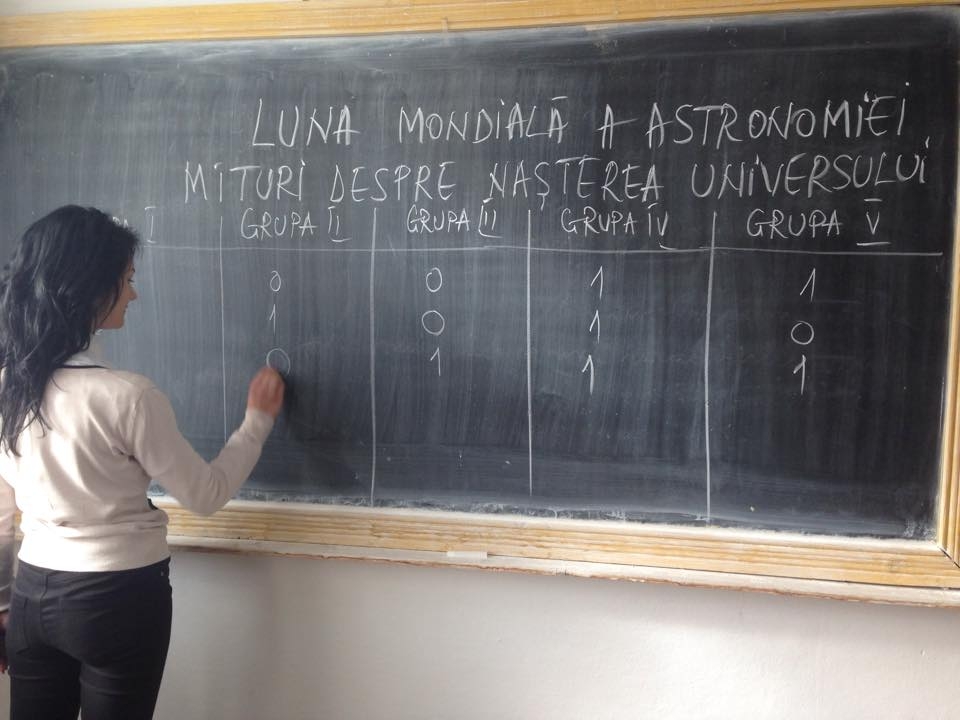 LUNA MONDIALĂ A ASTRONOMIEI
MITURI DESPRE NAȘTEREA UNIVERSULUI
I GRUPA II GRUPA III GRUPA IV GRUPA V
0 0 1 1
1 0 1 0
0 1 1 1